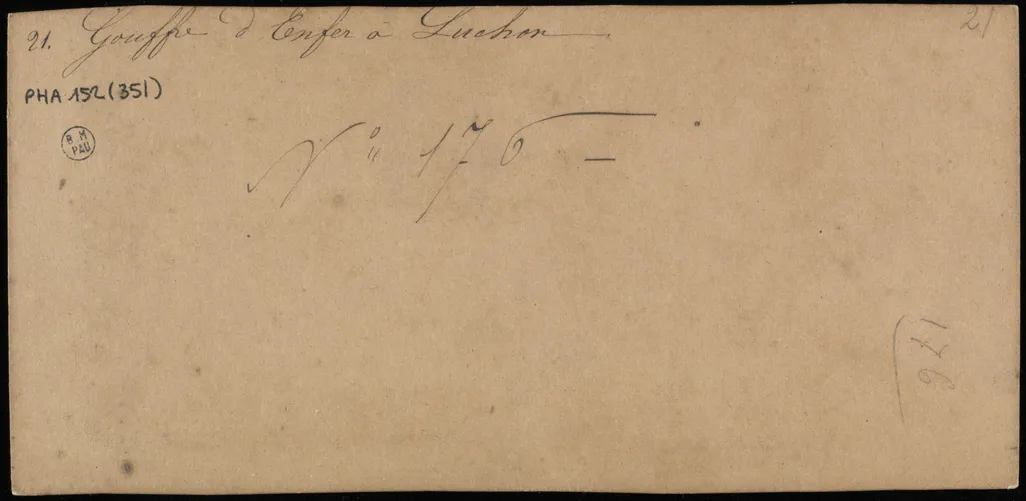 21. Gouffre d'Enfer à Luchon
21
PHA 152 (351)
B M
PAU
N° 176
176